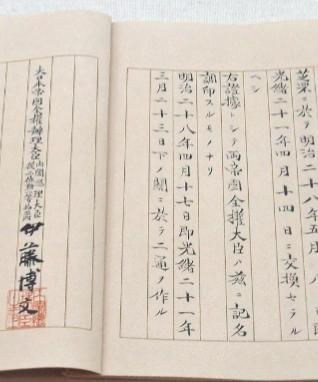 芝罘ニ於テ明治二十八年五月八日即
光緒二十一年四月十四日ニ交換セラル
ヘシ
右證據トシテ兩帝國全權大臣ハ茲ニ記名
調印スルモノナリ
明治二十八年四月十七日即光緒二十一年
三月二十三日下ノ關ニ於テ二通ヲ作ル
大日本帝國全權辦理大臣
伊藤博文